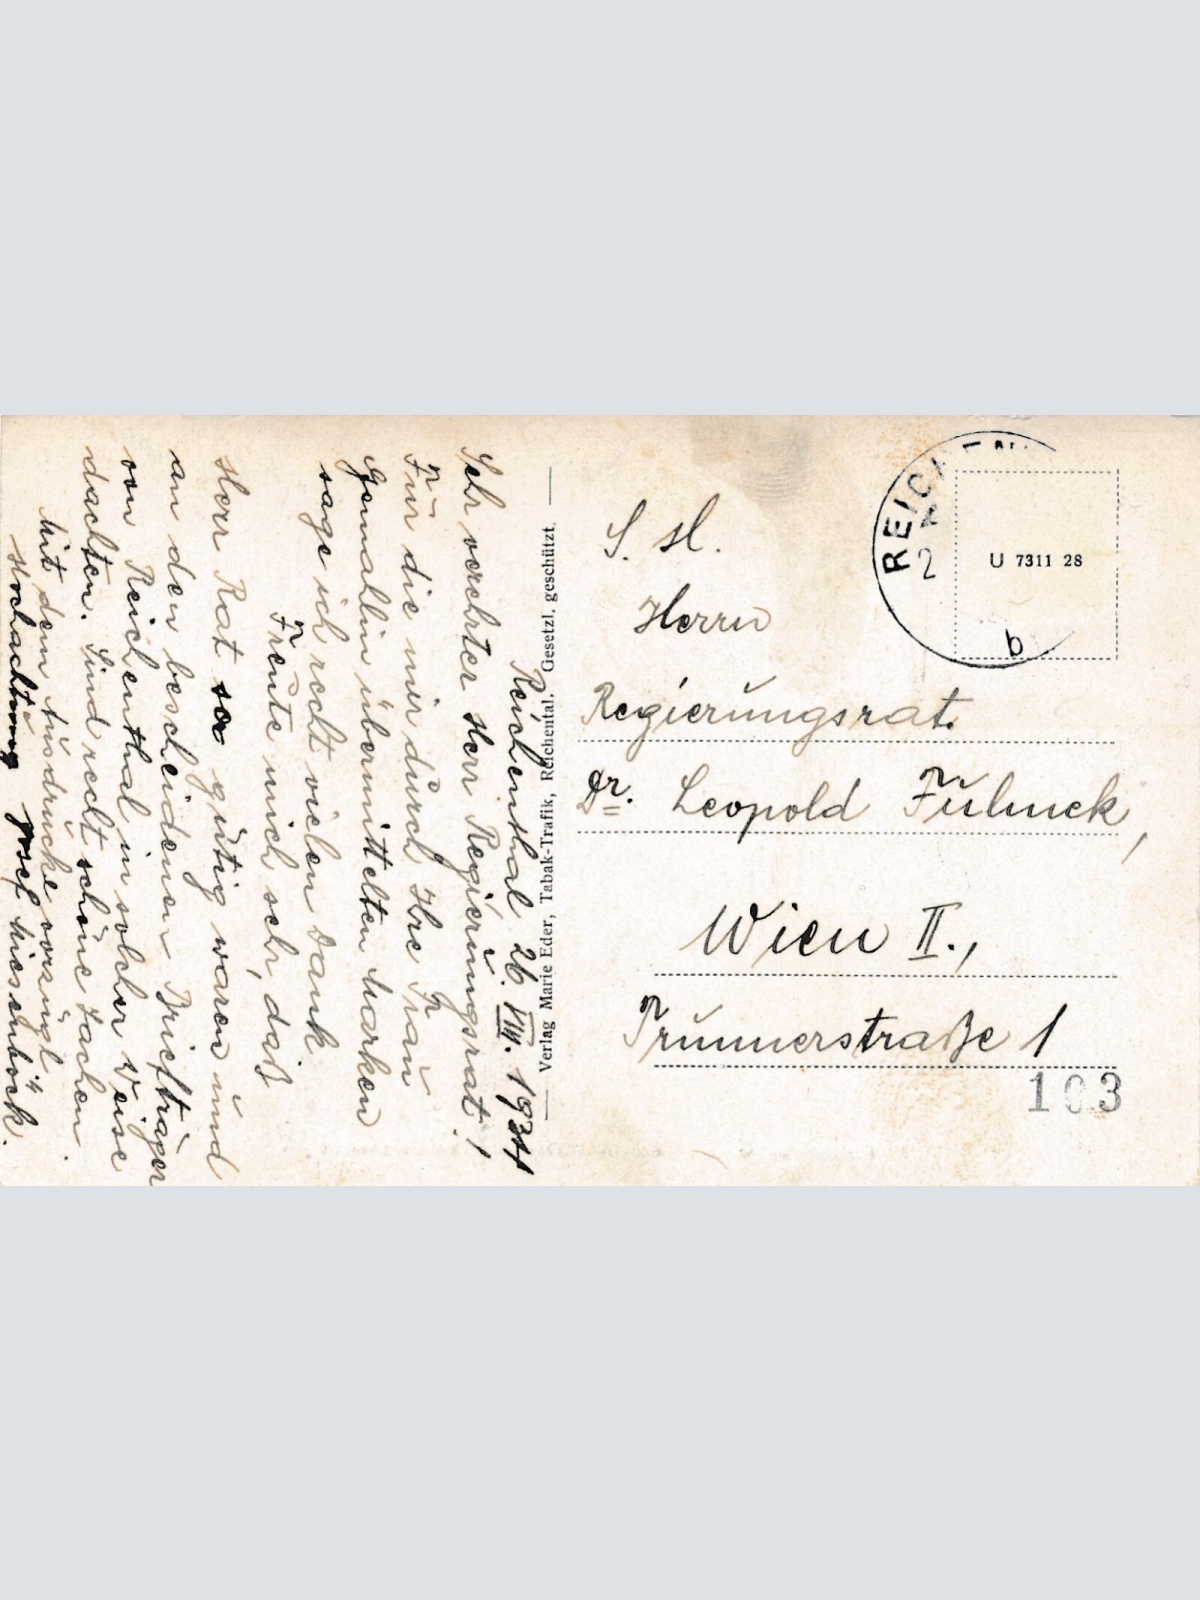 Reichenthal 26. VIII. 1934
Sehr verehrter Herr Regierungsrat!
Für die mir durch Ihre Frau
Gemahlin übermittelten Marken
sage ich recht vielen Dank
Freute mich sehr, daß
Herr Rat so gütig waren und
an den bescheidenen Briefträger
von Reichenthal in solcher Weise
dachten. Sind recht schöne Sachen.
Mit dem Ausdrucke vorzügl.
Hochachtung Josef
Verlag Marie Eder, Tabak-Trafik, Reichental. Gesetzl. geschützt.
U 7311 28
2
b
S. H.
Herrn
Regierungsrat.
Dr. Leopold Fulmek,
Wien II.,
Prunnerstraße 1
103